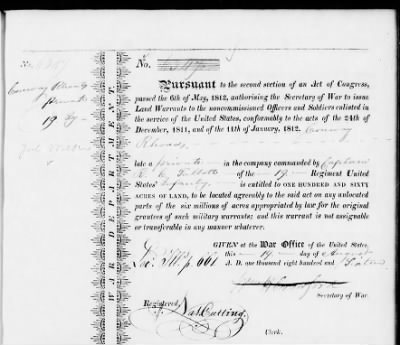 No.
Conway Rhoads
Private
19
No.
Pursuant to the second section of an Act of Congress,
passed the 6th of May, 1812, authorising the Secretary of War to issue
Land Warrants to the noncommissioned Officers and Soldiers enlisted in
the service of the United States, conformably to the acts of the 24th of
December, 1811, and of the 11th of January, 1812. Conway
Rhoads,
late a private in the company commanded by Captain
Talbott of the 19 Regiment United
States' Infantry is entitled to ONE HUNDRED AND SIXTY
ACRES OF LAND, to be located agreeably to the said act on any unlocated
parts of the six millions of acres appropriated by law for the original
grantees of such military warrants; and this warrant is not assignable
or transferable in any manner whatever.
GIVEN at the War Office of the United States,
this 19 day of August
A. D. one thousand eight hundred and
Secretary of War.
Registered, Nat Cutting,
Clerk.
WAR DEPARTMENT.